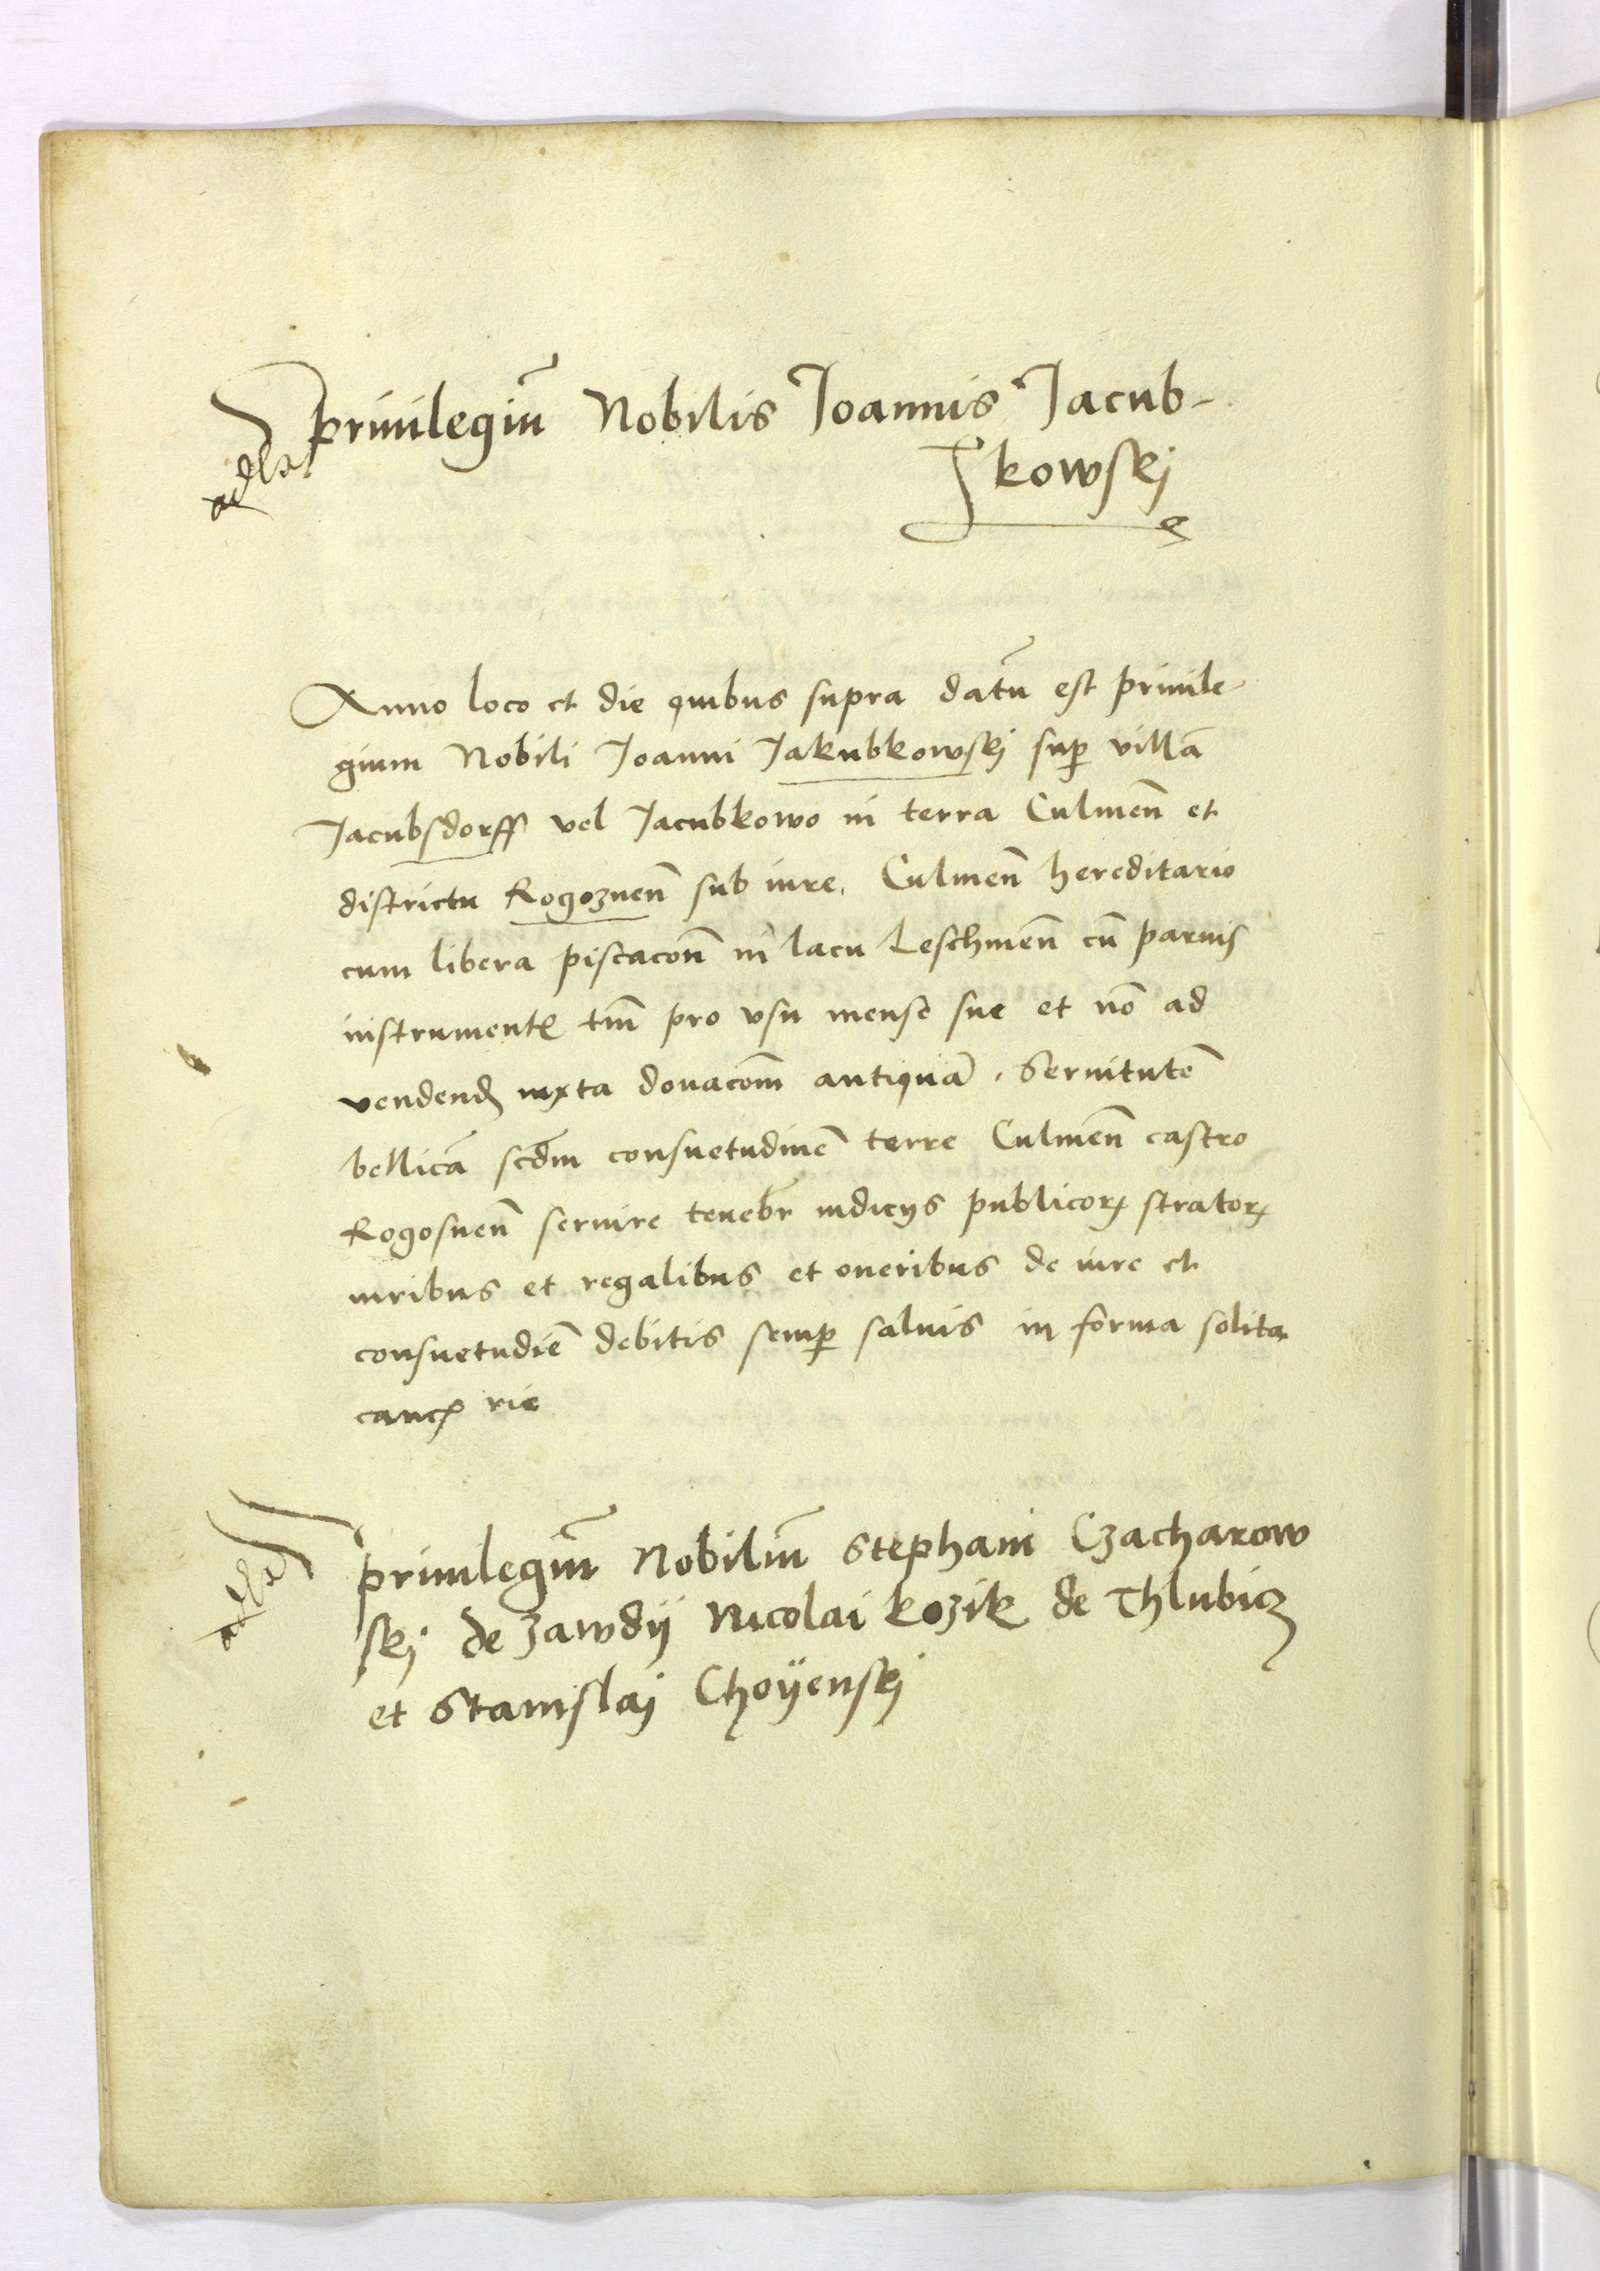 Priuilegiu͂ Nobilis Joannis Jacub-
kowskj
Anno loco et die quibus supra datu͂ est priuile
gium Nobili Joanni Jakubkowskj sup villa͂
Jacubsdorff vel Jacubkowo in terra Culmen͂ et
districtu Rogoznen͂ sub iure Culmen͂ hereditario
cum libera piscacon͂ in lacu Leschmen͂ cu͂ paruis
instrument͂ tm͂ pro vsu mense sue et no͂ ad
vendend͂ iuxta donacom͂ antiqua͂. Seruitute͂
bellica͂ scdm͂ consuetudine͂ terre Culmen͂ castro
Rogosnen͂ seruire teneb͂r iudicijs publicoꝝ stratoꝝ
iuribus et regalibus et oneribus de iure et
consuetudi͂e debitis semp saluis in forma solita
canc͂ rie
Priuilegiu͂ Nobiliu͂ Stephani Czacharow
skj de Zawdÿ Nicolai Kozik de Thlubicz
et Stanislaj Choÿenskj